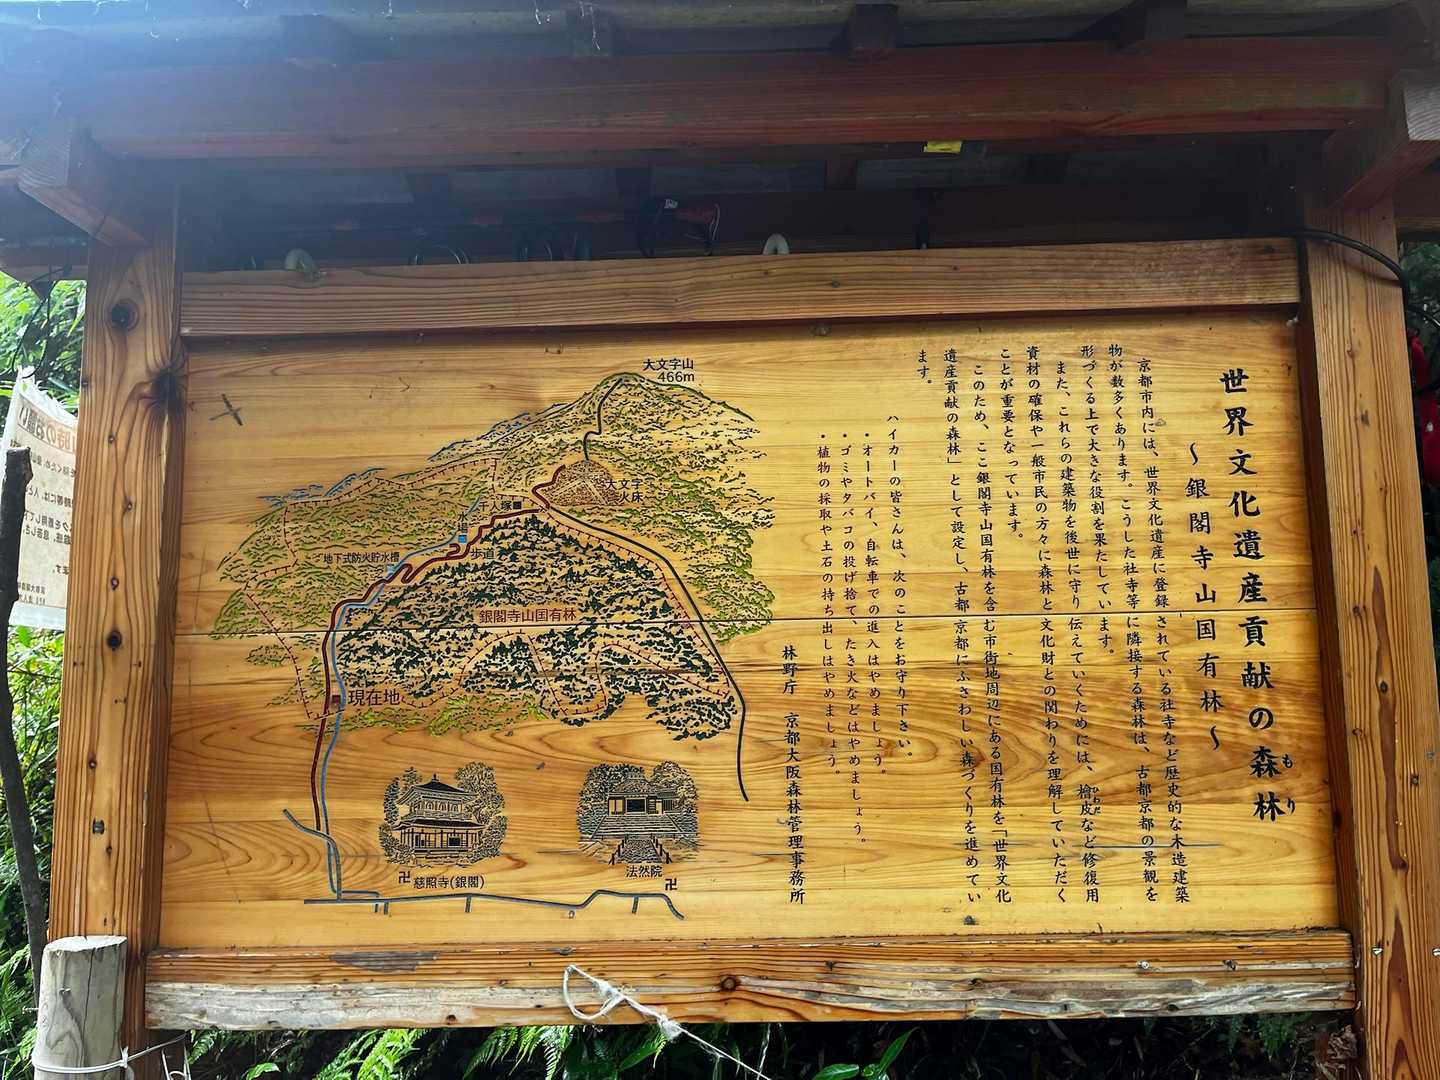 世界文化遺産貢献の森林
もり
～銀閣寺山国有林～
京都市内には、世界文化遺産に登録されている社寺など歴史的な木造建築
物が数多くあります。こうした社寺等に隣接する森林は、古都京都の景観を
形づくる上で大きな役割を果たしています。
また、これらの建築物を後世に守り伝えていくためには、檜皮など修復用
ひわだ
資材の確保や一般市民の方々に森林と文化財との関わりを理解していただく
ことが重要となっています。
このため、ここ銀閣寺山国有林を含む市街地周辺にある国有林を「世界文化
遺産貢献の森林」として設定し、古都京都にふさわしい森づくりを進めてい
ます。
ハイカーの皆さんは、次のことをお守り下さい。
・オートバイ、自転車での進入はやめましょう。
・ゴミやタバコの投げ捨て、たき火などはやめましょう。
・植物の採取や土石の持ち出しはやめましょう。
林野庁 京都大阪森林管理事務所
大文字山
466m
大文字
火床
千人塚
歩道
地下式防火貯水槽
銀閣寺山国有林
現在地
卍慈照寺(銀閣)
法然院
卍